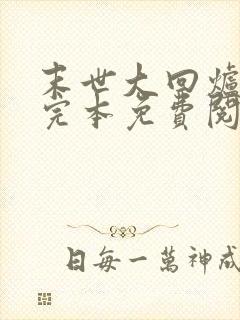 末世大回爐
完本免費閱
日每一萬神成